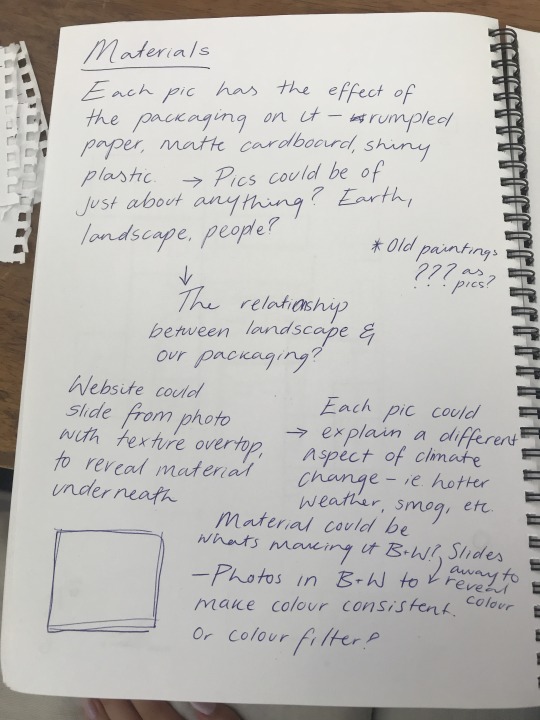 Materials
Each pic has the effect of
the packaging on it – rumpled
paper, matte cardboard, shiny
plastic. → Pics could be of
just about anything? Earth,
landscape, people?
* Old paintings
??? as
pics?
↓
The relationship
between landscape &
our packaging?
Website could
slide from photo
with texture overtop,
to reveal material
underneath
→ Each pic could
explain a different
aspect of climate
change – ie. hotter
weather, smog, etc.
Material could be
whats making it B+W?
Slides
away to
reveal
colour
– Photos in B+W to
make colour consistent.
Or colour filter?